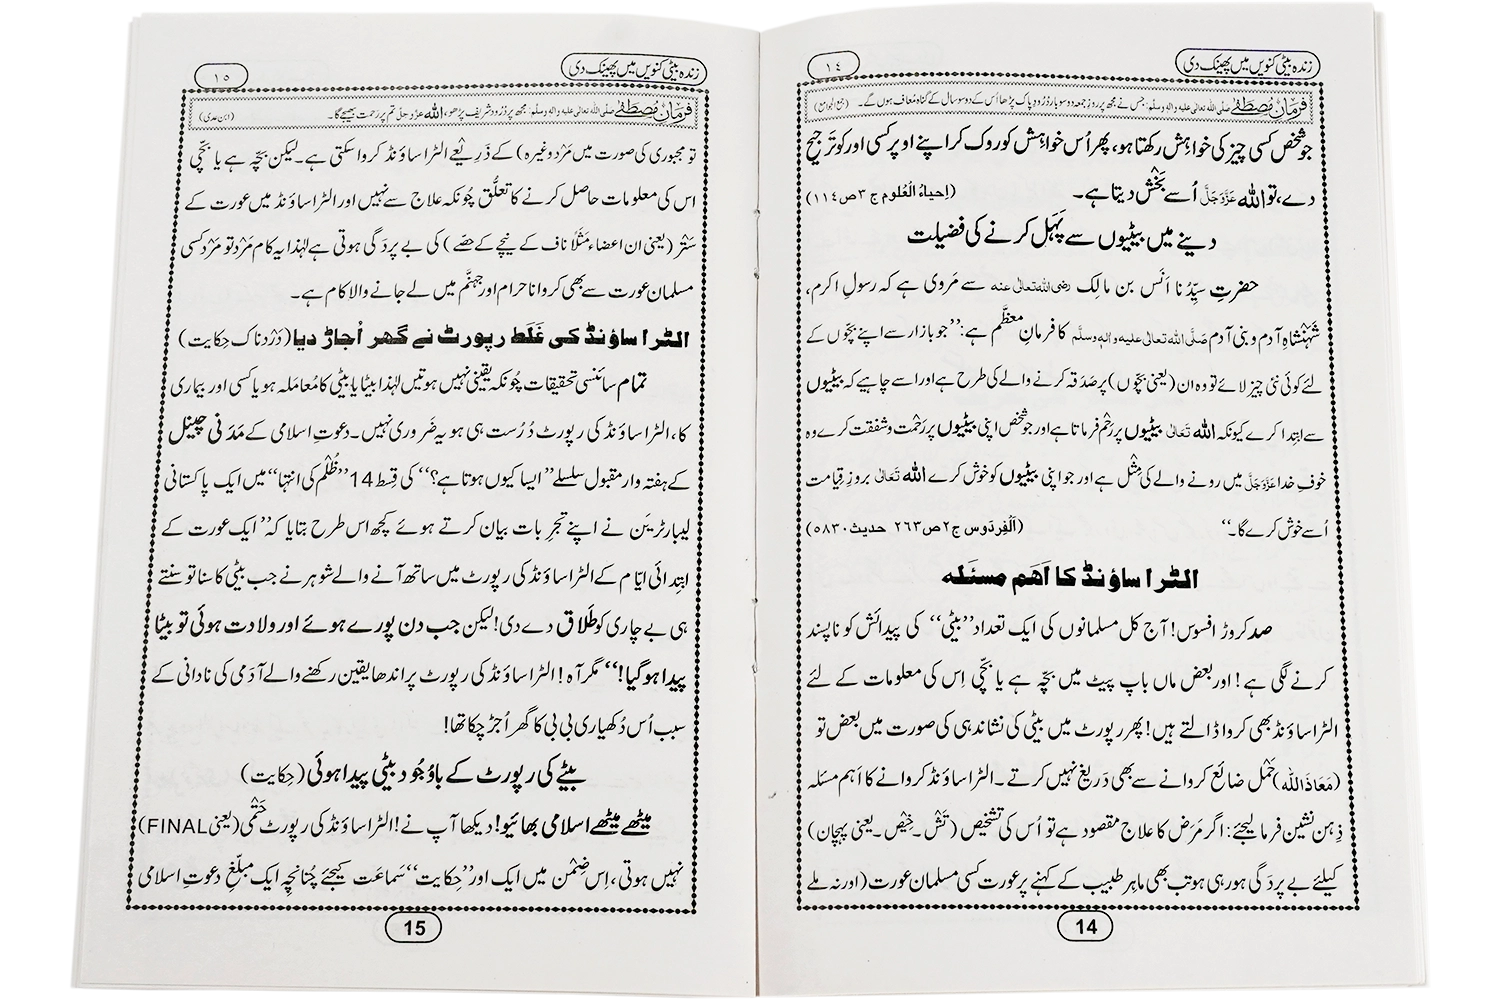 زندہ بیٹی کنویں میں پھینک دی
١٤
فرمانِ مصطفٰے صلی اللہ تعالٰی علیہ واٰلہ وسلم: جس نے مجھ پر روزِ جمعہ دو سو بار دُرُود پاک پڑھا اُس کے دو سو سال کے گناہ مُعاف ہوں گے۔ (جمع الجوامع)
جو شخص کسی چیز کی خواہش رکھتا ہو، پھر اُس خواہش کو روک کر اپنے اوپر کسی اور کو تَرجیح
دے، تو اللہ عَزَّوَجَلَّ اُسے بَخش دیتا ہے۔ (اِحیاءُ الْعُلوم ج ٣ ص ١١٤)
دینے میں بیٹیوں سے پَہَل کرنے کی فضیلت
حضرتِ سیِّدُنا اَنَس بن مالِک رضی اللہ تعالٰی عنہ سے مَروی ہے کہ رسولِ اکرم،
شَہَنْشاہِ آدم و بنی آدم صَلَّی اللہ تعالٰی علیہ واٰلہٖ وسلَّم کا فرمانِ معظَّم ہے: ”جو بازار سے اپنے بچّوں کے
لئے کوئی نئی چیز لائے تو وہ ان (یعنی بچّوں) پر صَدَقہ کرنے والے کی طرح ہے اور اسے چاہیے کہ بیٹیوں
سے ابتِدا کرے کیونکہ اللہ تَعَالٰی بیٹیوں پر رَحم فرماتا ہے اور جو شخص اپنی بیٹیوں پر رَحمت و شفقت کرے وہ
خوفِ خدا عَزَّوَجَلَّ میں رونے والے کی مِثل ہے اور جو اپنی بیٹیوں کو خوش کرے اللہ تَعَالٰی بروزِ قِیامت
اُسے خوش کرے گا۔“ (اَلفِردَوس ج ٢ ص ٢٦٣ حدیث ٥٨٣٠)
الٹرا ساؤنڈ کا اَھَم مسئلہ
صد کروڑ افسوس! آج کل مسلمانوں کی ایک تعداد ”بیٹی“ کی پیدائش کو ناپسند
کرنے لگی ہے! اور بعض ماں باپ پیٹ میں بچّہ ہے یا بچّی اِس کی معلومات کے لئے
الٹرا ساؤنڈ بھی کروا ڈالتے ہیں! پھر رپورٹ میں بیٹی کی نشاندہی کی صورت میں بعض تو
(مَعَاذَاللہ) حَمْل ضائع کروانے سے بھی دَریغ نہیں کرتے۔ الٹرا ساؤنڈ کروانے کا اَہم مسئلہ
ذِہن نشین فرما لیجئے: اگر مَرَض کا علاج مقصود ہے تو اُس کی تشخیص (تَش۔خِیص۔یعنی پہچان)
کیلئے بے پردَگی ہو رہی ہو تب بھی ماہِر طبیب کے کہنے پر عورت کسی مسلمان عورت (اور نہ ملے
14
زندہ بیٹی کنویں میں پھینک دی
١٥
فرمانِ مصطفٰے صلی اللہ تعالٰی علیہ واٰلہ وسلم: مجھ پر دُرُود شریف پڑھو، اللہ عزوجل تم پر رَحمت بھیجے گا۔ (ابن عدی)
تو مجبوری کی صورت میں مَرْد وغیرہ) کے ذَرِیعے الٹرا ساؤنڈ کروا سکتی ہے۔ لیکن بچّہ ہے یا بچّی
اس کی معلومات حاصل کرنے کا تعلُّق چُونکہ علاج سے نہیں اور الٹرا ساؤنڈ میں عورت کے
سَتْر (یعنی ان اعضاء مَثَلًا ناف کے نیچے کے حصّے) کی بے پردَگی ہوتی ہے لہٰذا یہ کام مَرْد تو مَرْد کسی
مسلمان عورت سے بھی کروانا حرام اور جہنَّم میں لے جانے والا کام ہے۔
الٹرا ساؤنڈ کی غَلَط رپورٹ نے گھر اُجاڑ دیا (دَرْدناک حِکایت)
تمام سائنسی تحقیقات چُونکہ یقینی نہیں ہوتیں لہٰذا بیٹا یا بیٹی کا مُعامَلہ ہو یا کسی اور بیماری
کا، الٹرا ساؤنڈ کی رپورٹ دُرُست ہی ہو یہ ضَروری نہیں۔ دعوتِ اسلامی کے مَدَنی چینل
کے ہفتہ وار مقبول سلسلے ”ایسا کیوں ہوتا ہے؟“ کی قِسط 14 ”ظُلْم کی انتہا“ میں ایک پاکستانی
لیبارٹرِیَن نے اپنے تجرِبات بیان کرتے ہوئے کچھ اس طرح بتایا کہ ”ایک عورت کے
ابتِدائی ایّام کے الٹرا ساؤنڈ کی رپورٹ میں ساتھ آنے والے شوہر نے جب بیٹی کا سنا تو سنتے
ہی بے چاری کو طَلاق دے دی! لیکن جب دن پورے ہوئے اور وِلادت ہوئی تو بیٹا
پیدا ہو گیا!“ مگر آہ! الٹرا ساؤنڈ کی رپورٹ پر اندھا یقین رکھنے والے آدَمی کی نادانی کے
سبب اُس دُکھیاری بی بی کا گھر اُجڑ چکا تھا!
بیٹے کی رپورٹ کے باوُجُود بیٹی پیدا ہوئی (حِکایت)
میٹھے میٹھے اسلامی بھائیو! دیکھا آپ نے! الٹرا ساؤنڈ کی رپورٹ حَتْمی (یعنی FINAL)
نہیں ہوتی، اِس ضِمْن میں ایک اور ”حِکایت“ سَماعَت کیجئے چُنانچِہ ایک مبلِّغِ دعوتِ اسلامی
15